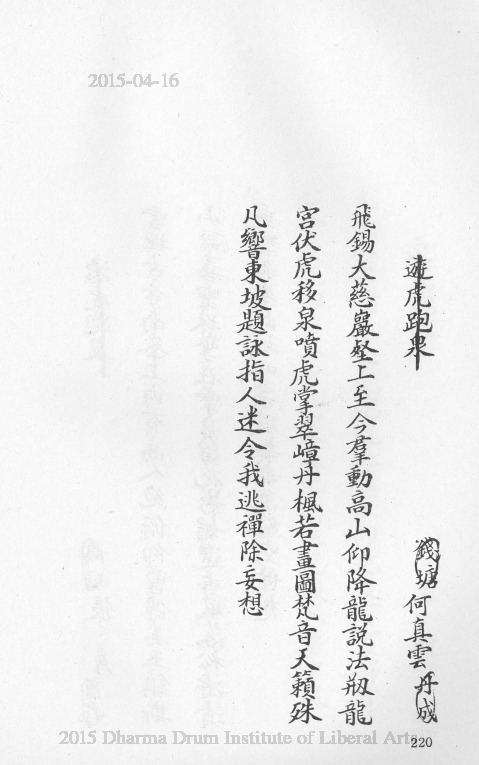 2015-04-16
遊虎跑泉
錢塘何真雲丹成
飛錫大慈巖壑上至今羣動高山仰降龍說法刱龍
宮伏虎移泉噴虎掌翠嶂丹楓若畫圖梵音天籟殊
凡響東坡題詠指人迷令我逃禪除妄想
2015 Dharma Drum Institute of Liberal Arts
220